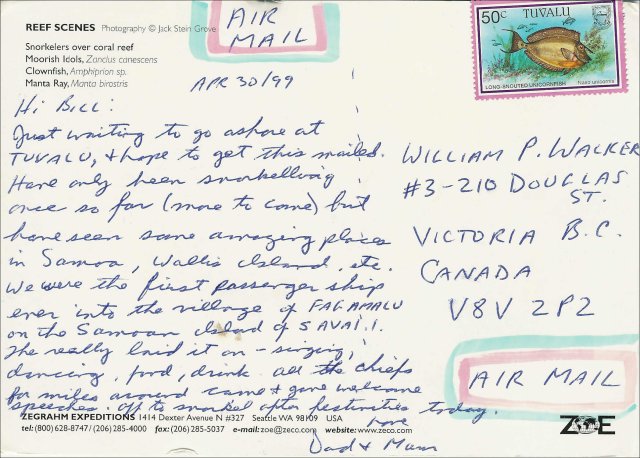 REEF SCENES Photography © Jack Stein Grove
Snorkelers over coral reef
Moorish Idols, Zanclus canescens
Clownfish, Amphiprion sp.
Manta Ray, Manta birostris
AIR
MAIL
50c TUVALU
LONG-SNOUTED UNICORNFISH Naso unicornis
APR 30/99
Hi Bill:
Just waiting to go ashore at
TUVALU, & hope to get this mailed.
Have only been snorkelling
once so far (more to come) but
have seen some amazing places
in Samoa, Wallis Island, etc.
We were the first passenger ship
ever into the village of FAGAMALU
on the Samoan Island of SAVAI.I.
The really laid it on - singing,
dancing, food, drink all the chiefs
for miles around came & gave welcome
speeches. Off to snorkel after festivities today.
Love
Dad & Mum
WILLIAM P. WALKER
#3-210 DOUGLAS
ST.
VICTORIA B.C.
CANADA
V8V 2P2
AIR MAIL
ZEGRAHM EXPEDITIONS 1414 Dexter Avenue N #327 Seattle WA 98109 USA
tel: (800) 628-8747 / (206) 285-4000 fax: (206) 285-5037 e-mail: zoe@zeco.com website: www.zeco.com
ZOE